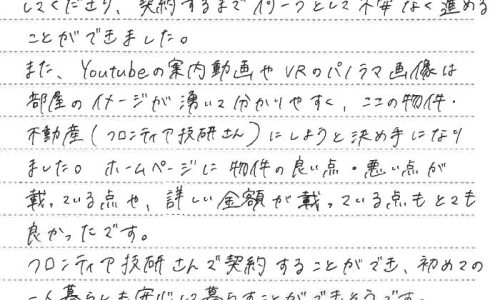 してくださり、契約するまで何一つとして不安なく進める
ことができました。
また、Youtubeの案内動画やVRのパノラマ画像は
部屋のイメージが湧いて分かりやすく、ここの物件・
不動産(フロンティア技研さん)にしようと決め手になり
ました。ホームページに物件の良い点・悪い点が
載っている点や、詳しい金額が載っている点もとても
良かったです。
フロンティア技研さんで契約することができ、初めての
一人暮らしも安心して暮らすことができそうです。